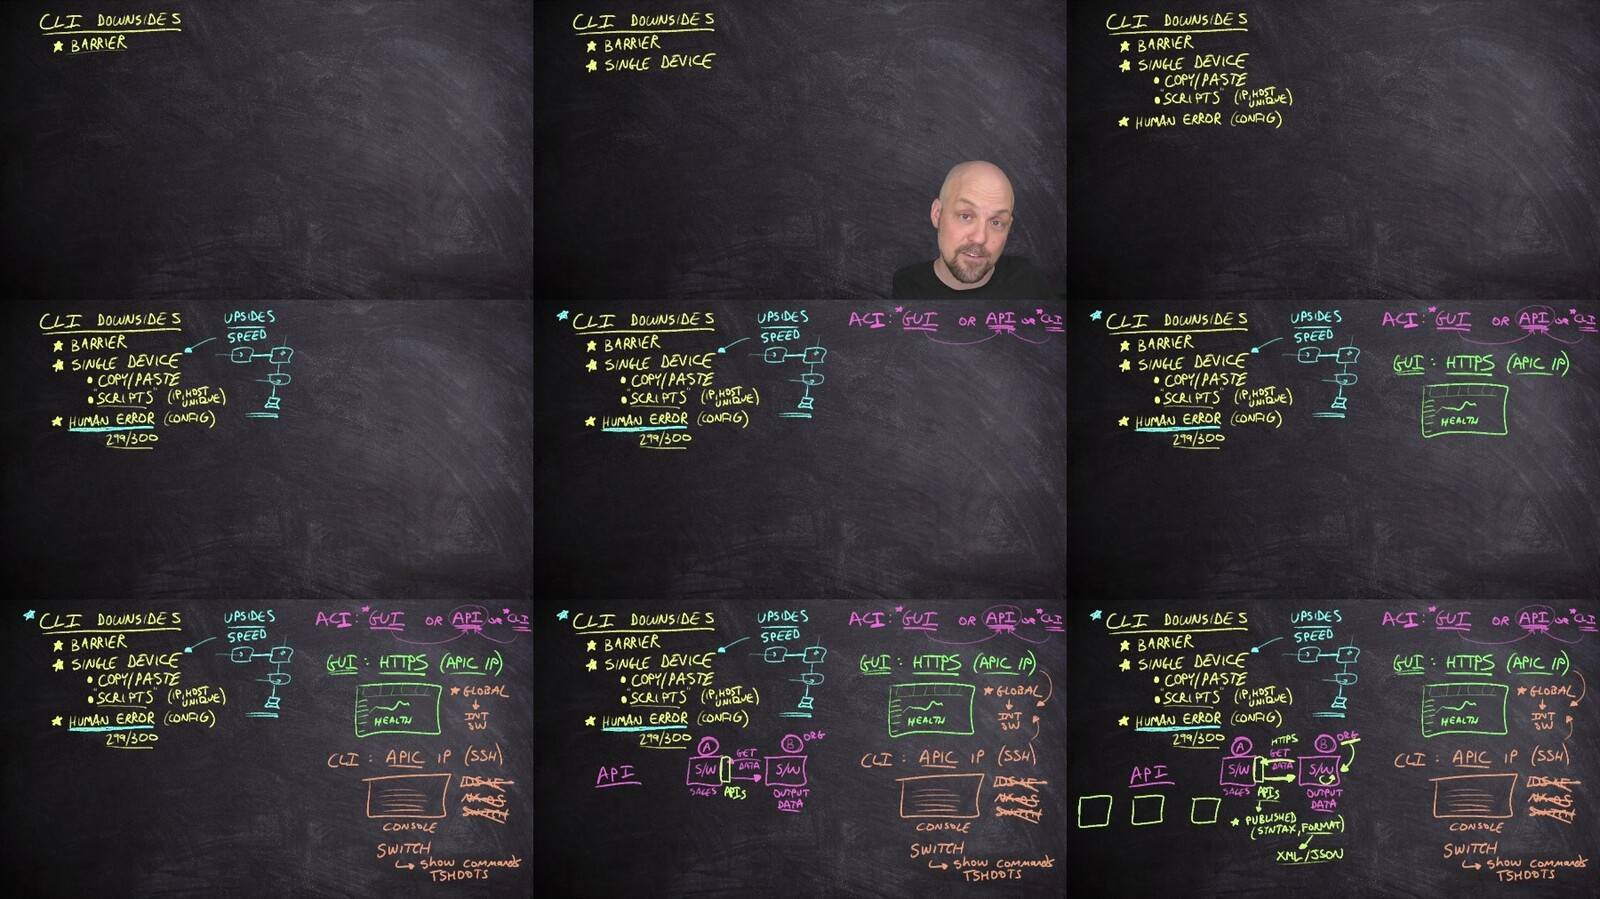 CLI DOWNSIDES
★ BARRIER
CLI DOWNSIDES
★ BARRIER
★ SINGLE DEVICE
CLI DOWNSIDES
★ BARRIER
★ SINGLE DEVICE
• COPY/PASTE
• "SCRIPTS" (IP, HOST UNIQUE)
★ HUMAN ERROR (CONFIG)
CLI DOWNSIDES
★ BARRIER
★ SINGLE DEVICE
• COPY/PASTE
• "SCRIPTS" (IP, HOST UNIQUE)
★ HUMAN ERROR (CONFIG)
299/300
UPSIDES
SPEED
* CLI DOWNSIDES
★ BARRIER
★ SINGLE DEVICE
• COPY/PASTE
• "SCRIPTS" (IP, HOST UNIQUE)
★ HUMAN ERROR (CONFIG)
299/300
UPSIDES
SPEED
ACI: *GUI OR API OR *CLI
* CLI DOWNSIDES
★ BARRIER
★ SINGLE DEVICE
• COPY/PASTE
• "SCRIPTS" (IP, HOST UNIQUE)
★ HUMAN ERROR (CONFIG)
299/300
UPSIDES
SPEED
ACI: *GUI OR API OR *CLI
GUI: HTTPS (APIC IP)
HEALTH
* CLI DOWNSIDES
★ BARRIER
★ SINGLE DEVICE
• COPY/PASTE
• "SCRIPTS" (IP, HOST UNIQUE)
★ HUMAN ERROR (CONFIG)
299/300
UPSIDES
SPEED
ACI: *GUI OR API OR *CLI
GUI: HTTPS (APIC IP)
HEALTH
★ GLOBAL
INT
SW
CLI: APIC IP (SSH)
CONSOLE
SWITCH
↳ SHOW COMMANDS
TSHOOTS
* CLI DOWNSIDES
★ BARRIER
★ SINGLE DEVICE
• COPY/PASTE
• "SCRIPTS" (IP, HOST UNIQUE)
★ HUMAN ERROR (CONFIG)
299/300
UPSIDES
SPEED
ACI: *GUI OR API OR *CLI
GUI: HTTPS (APIC IP)
HEALTH
★ GLOBAL
INT
SW
CLI: APIC IP (SSH)
CONSOLE
SWITCH
↳ SHOW COMMANDS
TSHOOTS
API
A
S/W
SALES
APIs
GET
DATA
B
ORG
S/W
OUTPUT
DATA
* CLI DOWNSIDES
★ BARRIER
★ SINGLE DEVICE
• COPY/PASTE
• "SCRIPTS" (IP, HOST UNIQUE)
★ HUMAN ERROR (CONFIG)
299/300
UPSIDES
SPEED
ACI: *GUI OR API OR *CLI
GUI: HTTPS (APIC IP)
HEALTH
★ GLOBAL
INT
SW
CLI: APIC IP (SSH)
CONSOLE
SWITCH
↳ SHOW COMMANDS
TSHOOTS
API
A
S/W
SALES
APIs
HTTPS
GET
DATA
B
ORG
S/W
OUTPUT
DATA
★ PUBLISHED
(SYNTAX, FORMAT)
XML/JSON